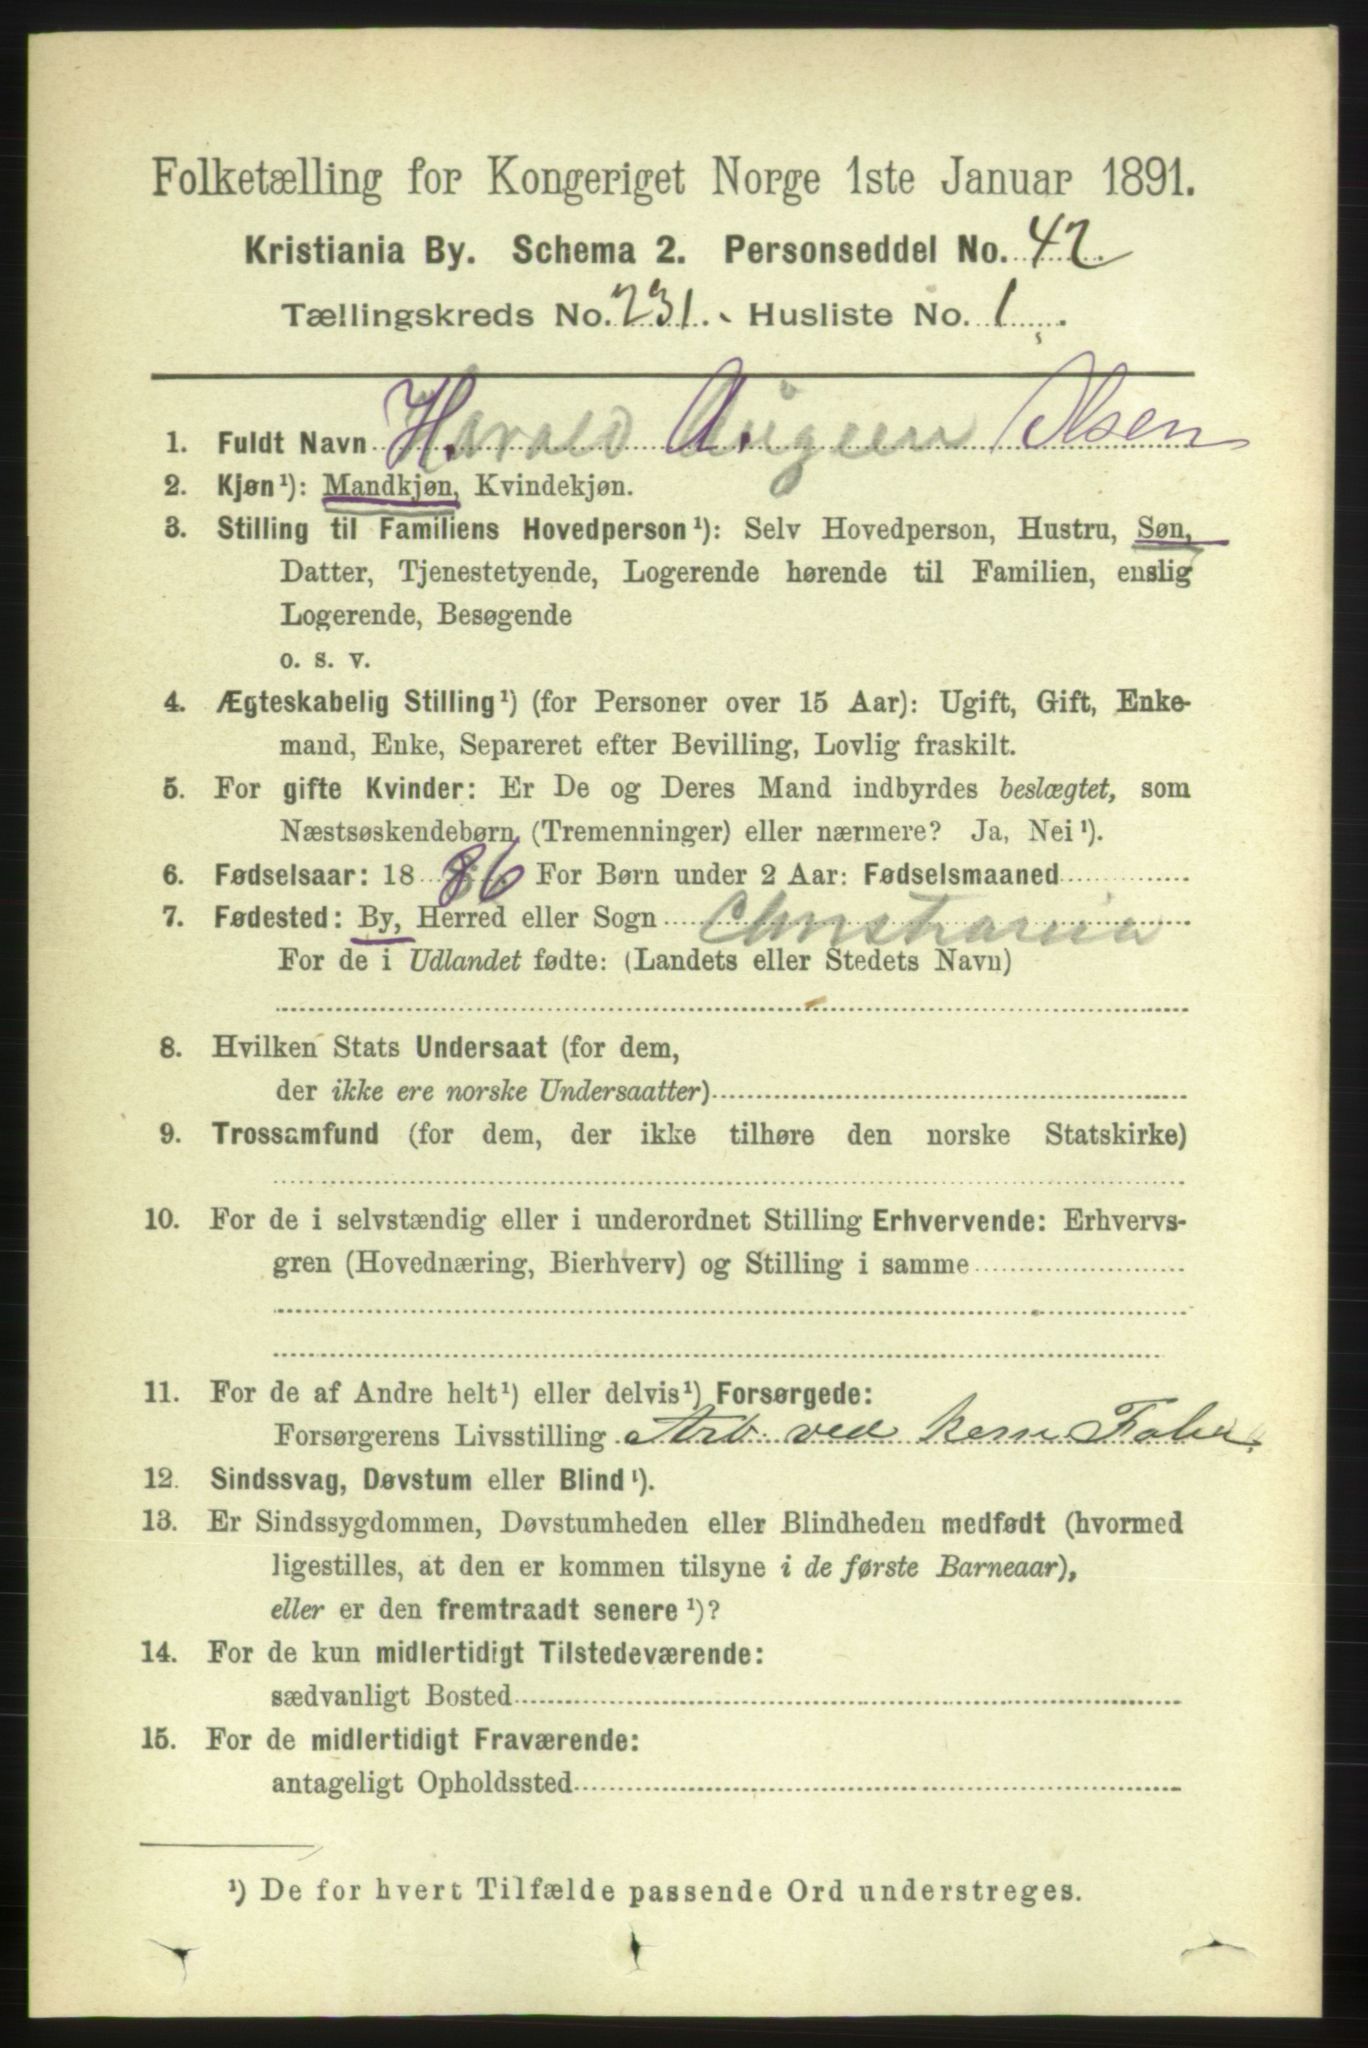 Folketælling for Kongeriget Norge 1ste Januar 1891.
Kristiania By. Schema 2. Personseddel No. 42
Tællingskreds No. 231. Husliste No. 1.
1. Fuldt Navn H. Harald A. Olsen
2. Kjøn¹): Mandkjøn, Kvindekjøn.
3. Stilling til Familiens Hovedperson¹): Selv Hovedperson, Hustru, Søn,
Datter, Tjenestetyende, Logerende hørende til Familien, enslig
Logerende, Besøgende
o. s. v.
4. Ægteskabelig Stilling¹) (for Personer over 15 Aar): Ugift, Gift, Enke-
mand, Enke, Separeret efter Bevilling, Lovlig fraskilt.
5. For gifte Kvinder: Er De og Deres Mand indbyrdes beslægtet, som
Næstsøskendebørn (Tremenninger) eller nærmere? Ja, Nei¹).
6. Fødselsaar: 1886 For Børn under 2 Aar: Fødselsmaaned
7. Fødested: By, Herred eller Sogn Christiania
For de i Udlandet fødte: (Landets eller Stedets Navn)
8. Hvilken Stats Undersaat (for dem,
der ikke ere norske Undersaatter)
9. Trossamfund (for dem, der ikke tilhøre den norske Statskirke)
10. For de i selvstændig eller i underordnet Stilling Erhvervende: Erhvervs-
gren (Hovednæring, Bierhverv) og Stilling i samme
11. For de af Andre helt¹) eller delvis¹) Forsørgede:
Forsørgerens Livsstilling Arb. ved
12. Sindssvag, Døvstum eller Blind¹).
13. Er Sindssygdommen, Døvstumheden eller Blindheden medfødt (hvormed
ligestilles, at den er kommen tilsyne i de første Barneaar),
eller er den fremtraadt senere¹)?
14. For de kun midlertidigt Tilstedeværende:
sædvanligt Bosted
15. For de midlertidigt Fraværende:
antageligt Opholdssted
¹) De for hvert Tilfælde passende Ord understreges.